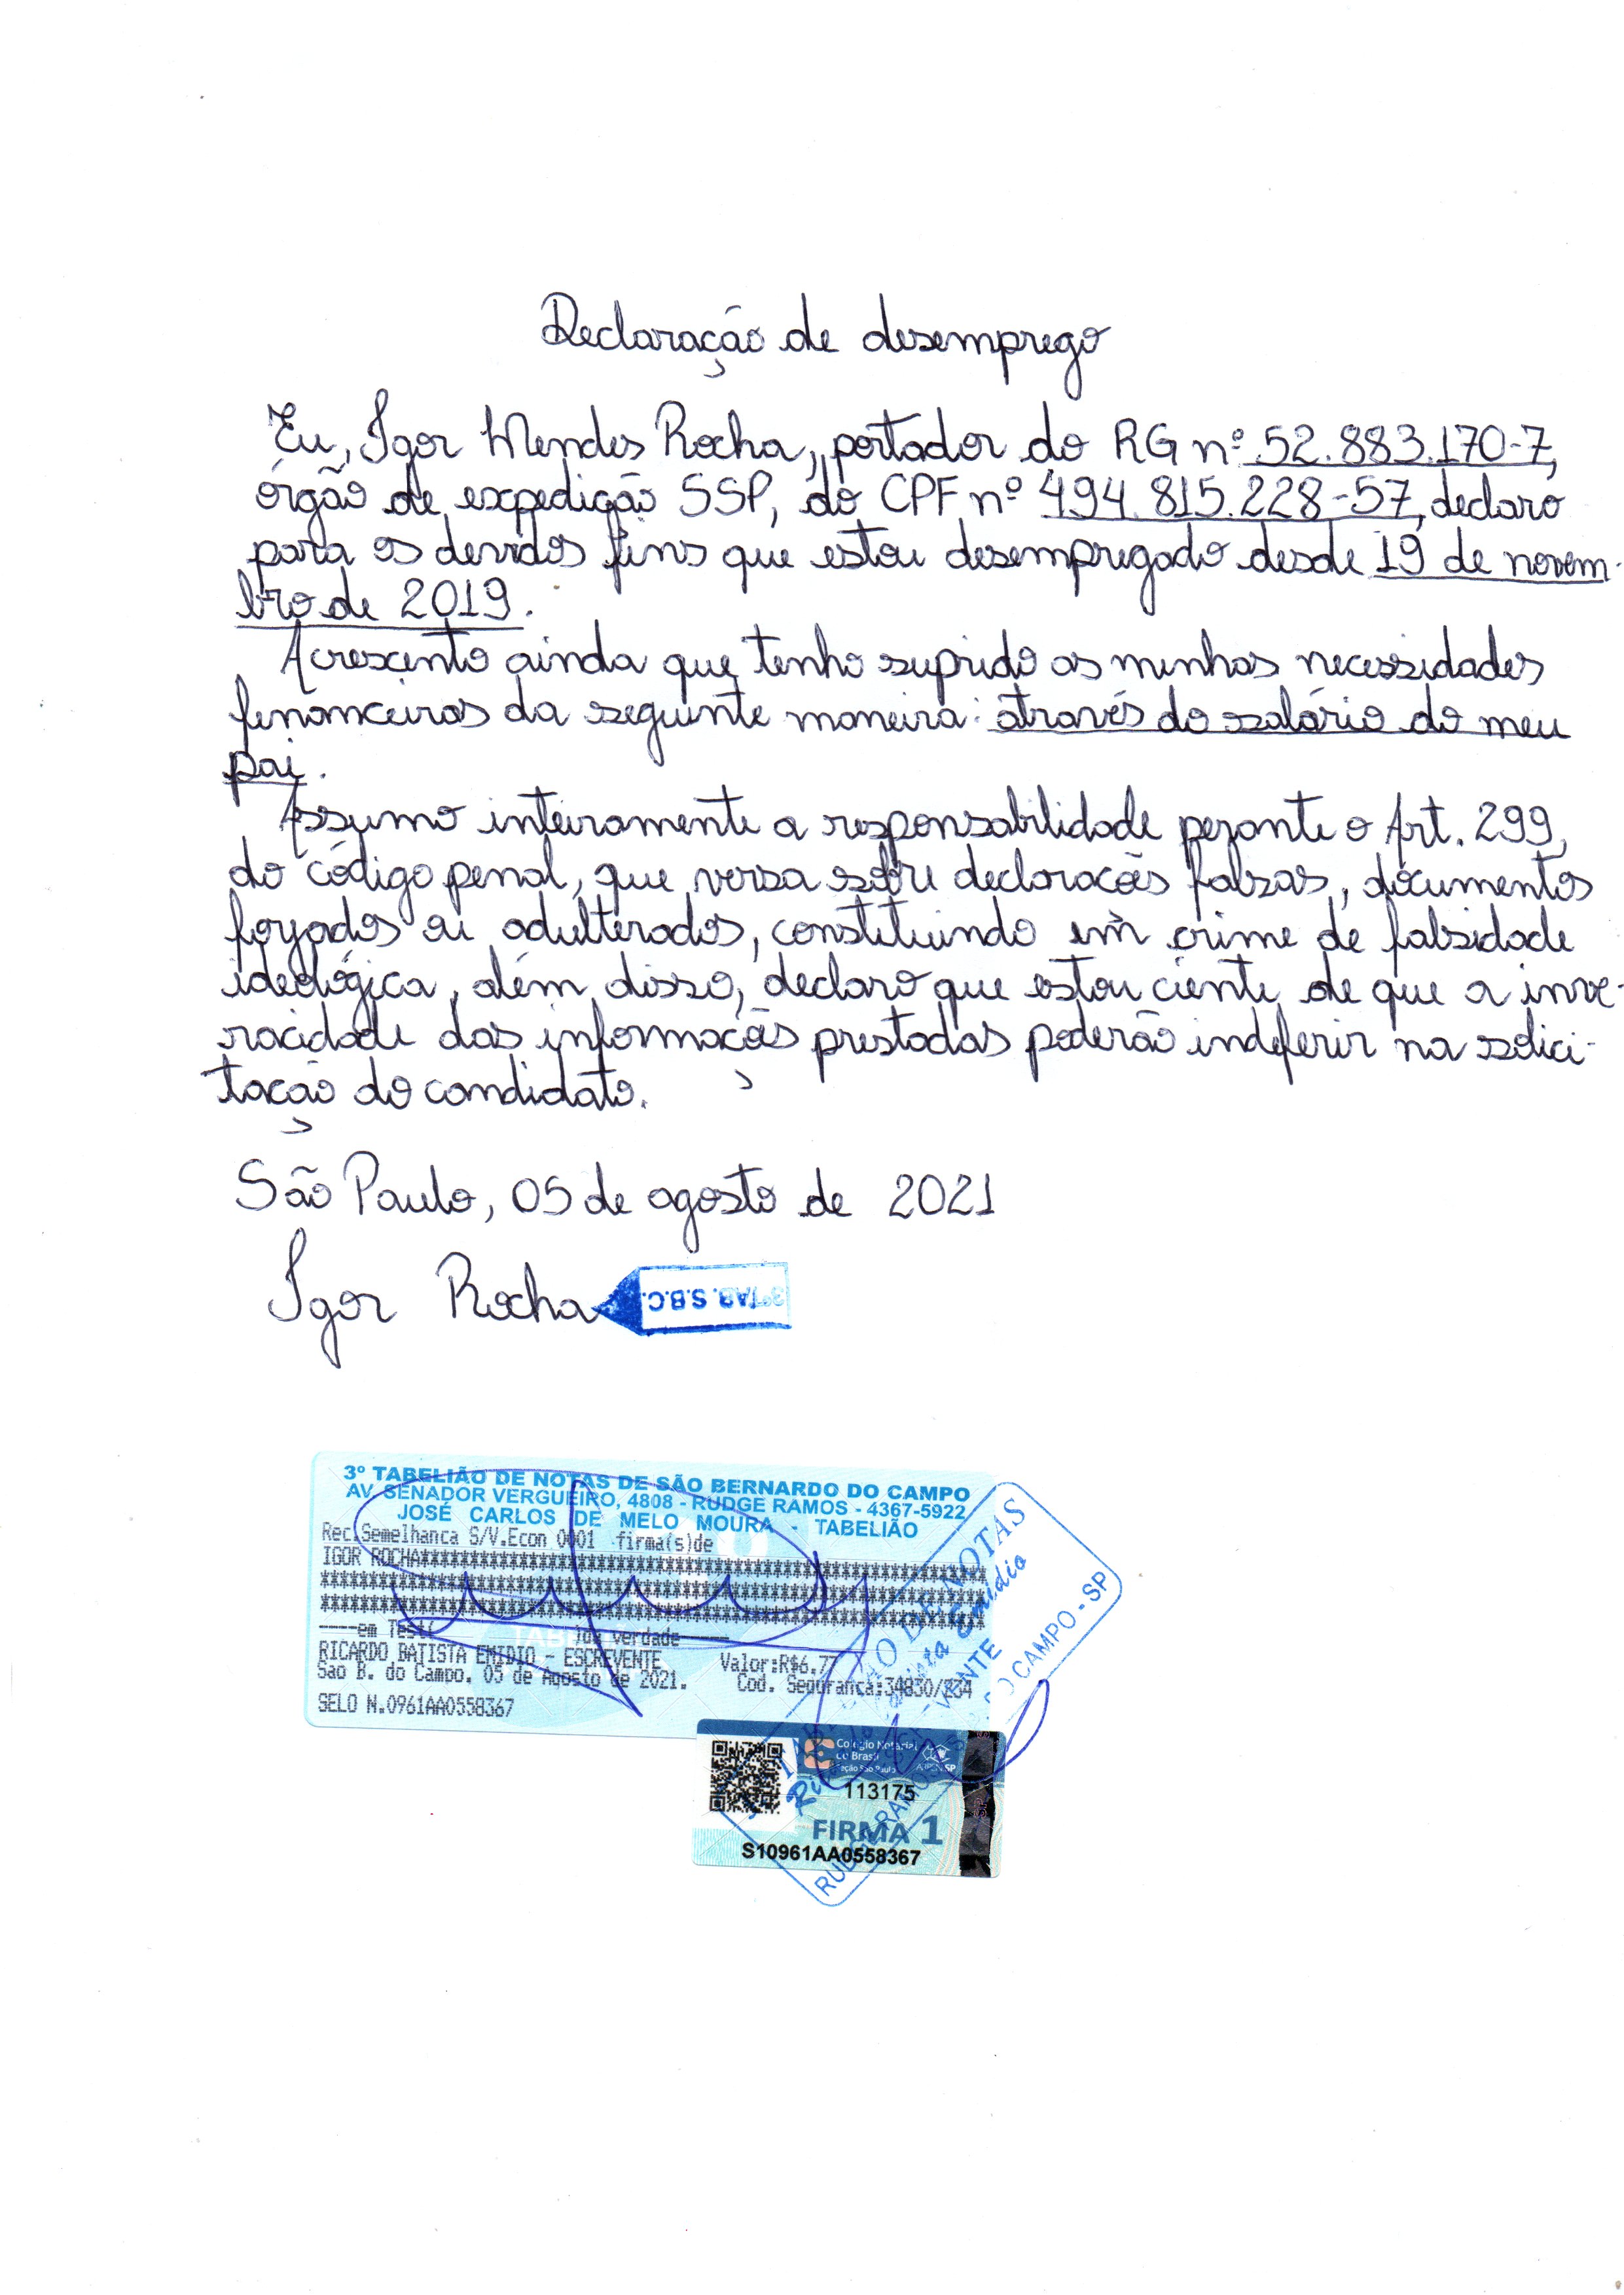 Declaração de desemprego
Eu, Igor Mendes Rocha, portador do RG nº 52.883.170-7,
órgão de expedição SSP, do CPF nº 494.815.228-57, declaro
para os devidos fins que estou desempregado desde 19 de novem-
bro de 2019.
Acrescento ainda que tenho suprido as minhas necessidades
financeiras da seguinte maneira: através do salário do meu
pai.
Assumo inteiramente a responsabilidade perante o Art. 299,
do código penal, que versa sobre declarações falsas, documentos
forjados ou adulterados, constituindo em crime de falsidade
ideológica, além disso, declaro que estou ciente de que a inve-
racidade das informações prestadas poderão indeferir na solici-
tação do candidato.
São Paulo, 05 de agosto de 2021
Igor Rocha
3º TAB. S.B.C.
3º TABELIÃO DE NOTAS DE SÃO BERNARDO DO CAMPO
AV. SENADOR VERGUEIRO, 4808 - RUDGE RAMOS - 4367-5922
JOSÉ CARLOS DE MELO MOURA - TABELIÃO
Rec.Semelhanca S/V.Econ 0001 firma(s)de
IGOR ROCHA******************************
****************************************
****************************************
----em Test da verdade----
RICARDO BATISTA EMIDIO - ESCREVENTE Valor:R$6,77
Sao B. do Campo. 05 de Agosto de 2021. Cod. Seguranca:34830/234
SELO N.0961AA0558367
Colégio Notarial
do Brasil
Seção São Paulo
113175
FIRMA 1
S10961AA0558367